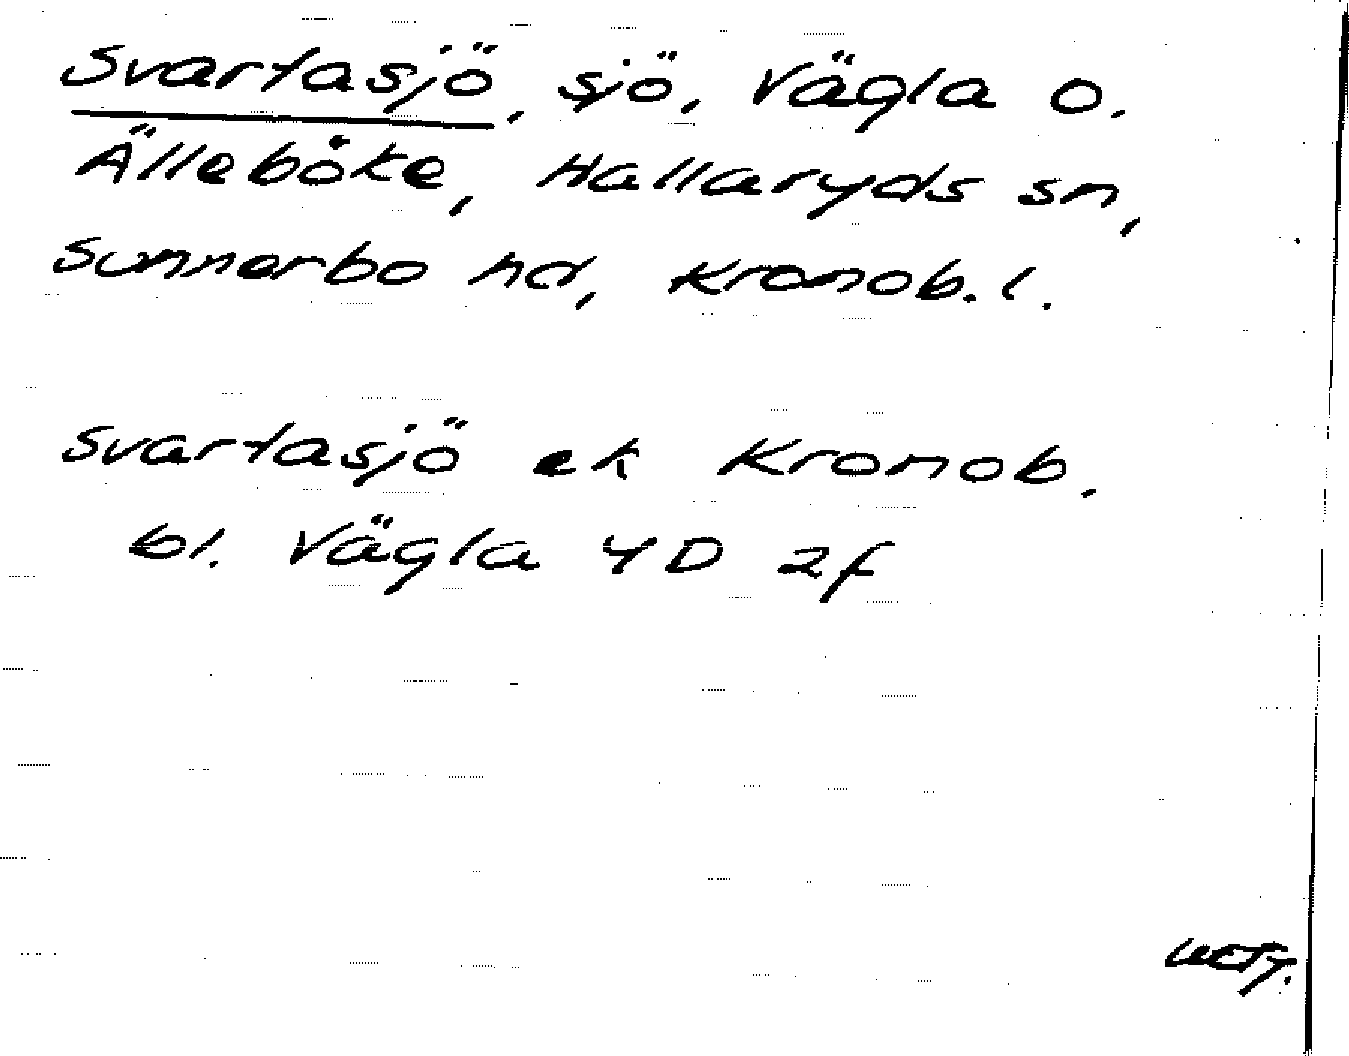 Svartasjö, sjö, Vägla o.
Älleböke, Hallaryds sn,
Sunnerbo hd, Kronob. l.
Svartasjö ek Kronob.
bl. Vägla 4D 2f